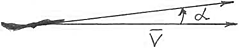 α
V̄